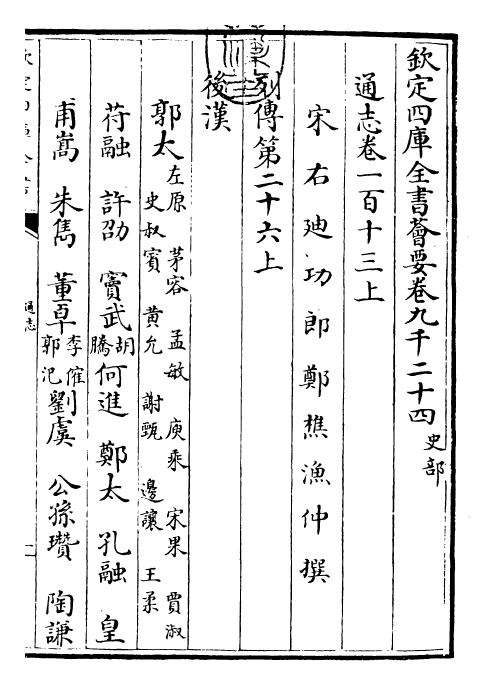 欽定四庫全書薈要卷九千二十四 史部
通志卷一百十三上
宋右廸功郎鄭樵漁仲撰
列傳第二十六上
後漢
郭太 左原 茅容 孟敏 庾乘 宋果 賈淑
史叔賓 黄允 謝甄 邊讓 王柔
苻融 許劭 竇武 胡騰 何進 鄭太 孔融 皇
甫嵩 朱雋 董卓 李傕 郭汜 劉虞 公孫瓚 陶謙
通志